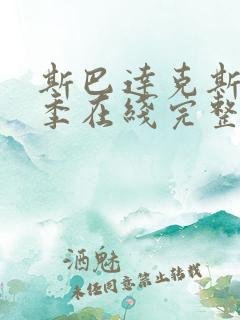 斯巴达克斯
季在线完整
酒魅
未经同意禁止转载